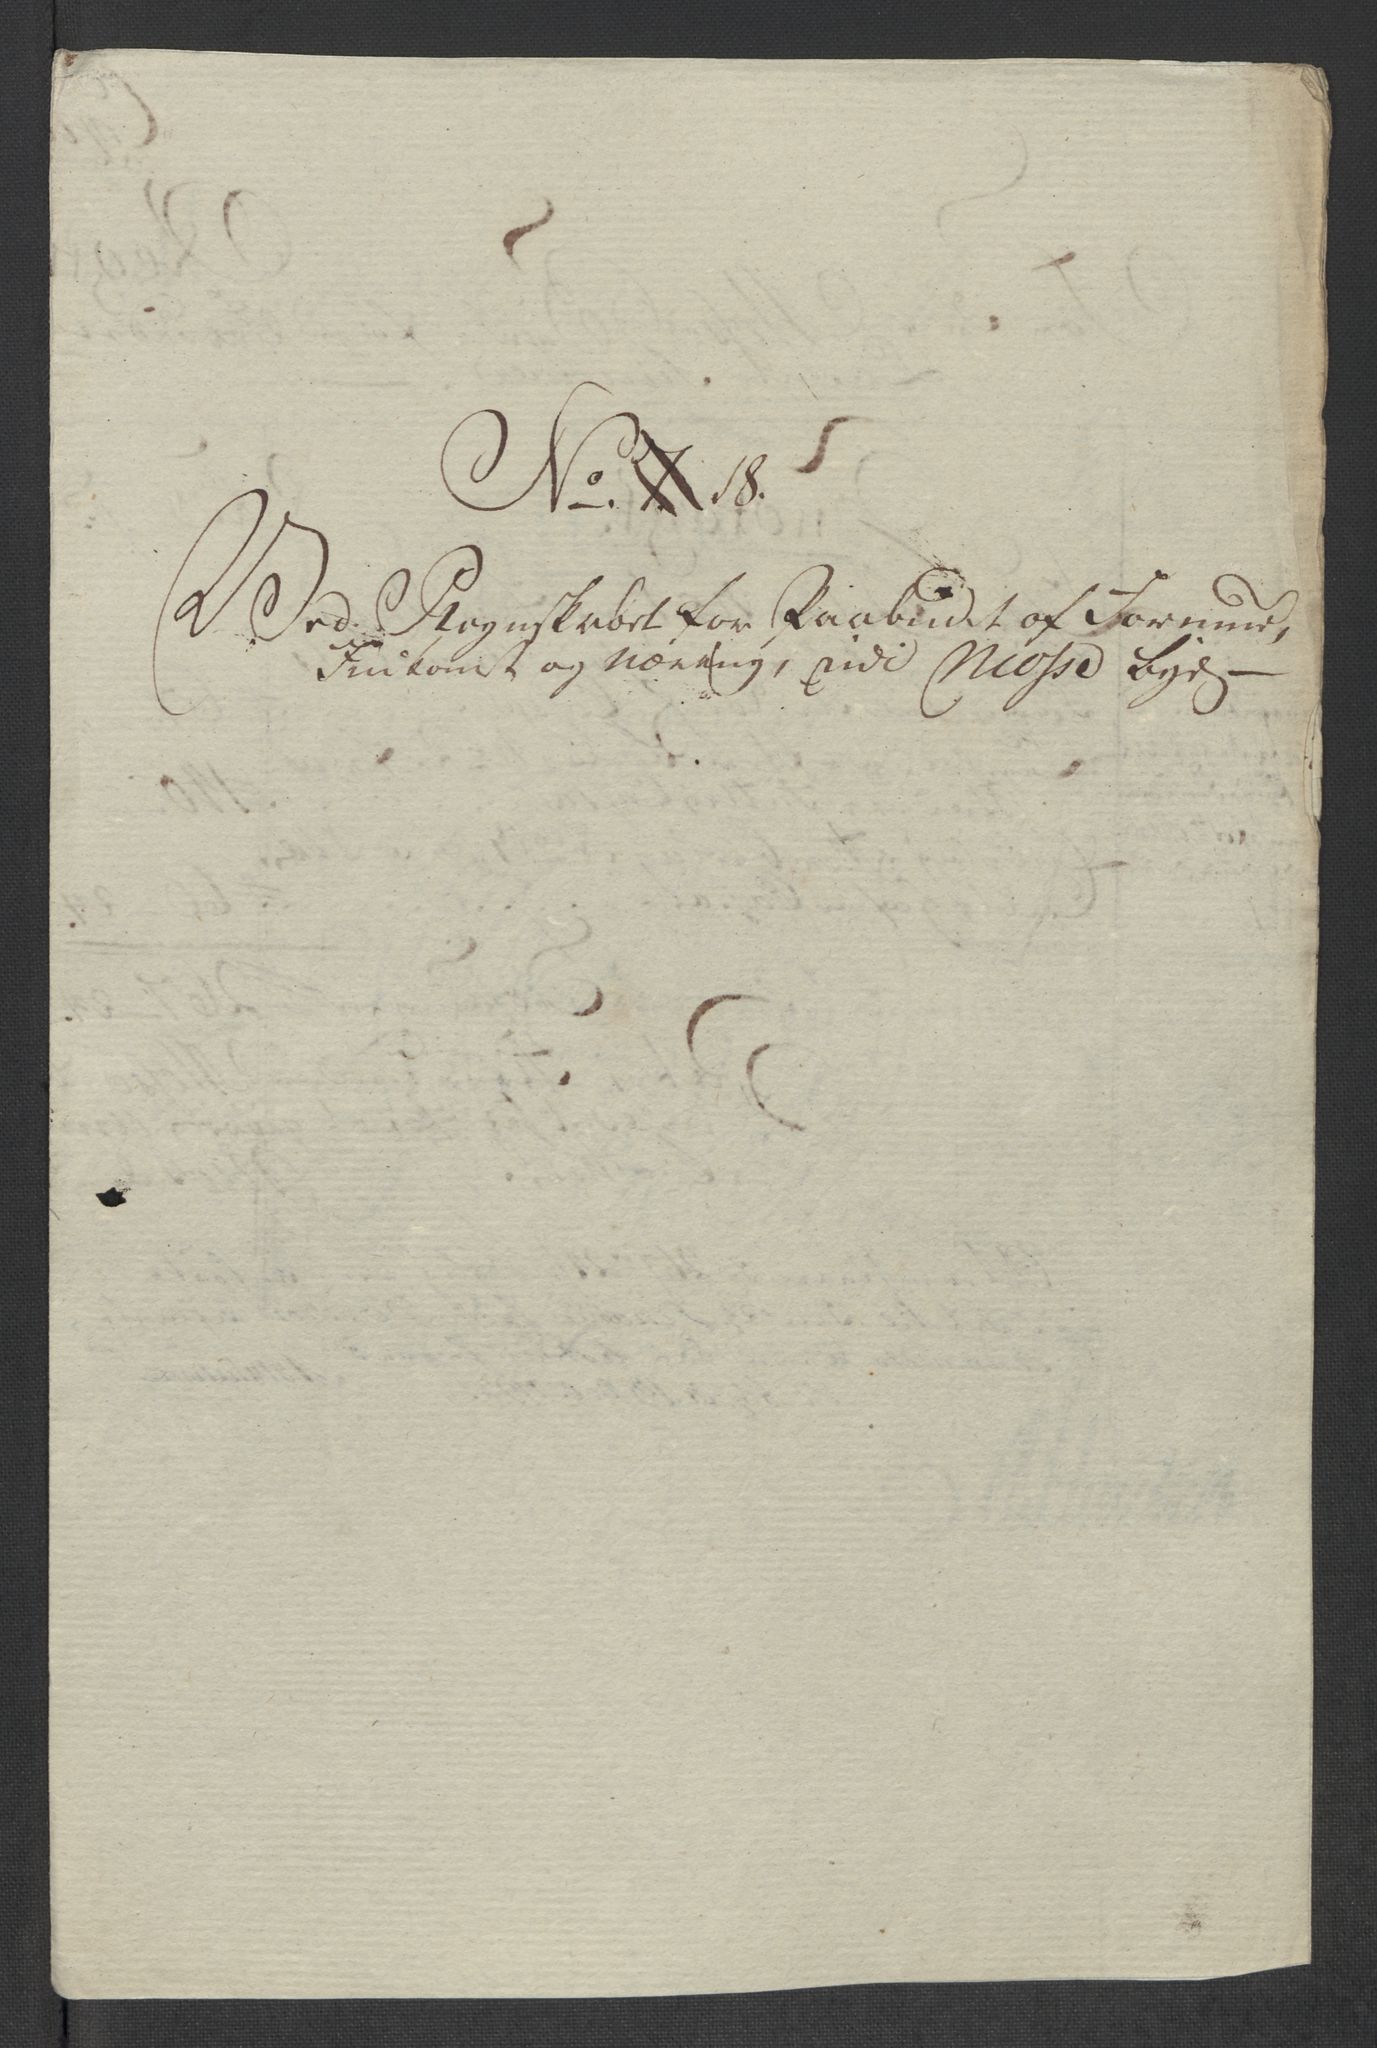 No. 18.
Ved Regnskabet for Paabudet af Formue,
Indkomst og næring, udi Mosse bye